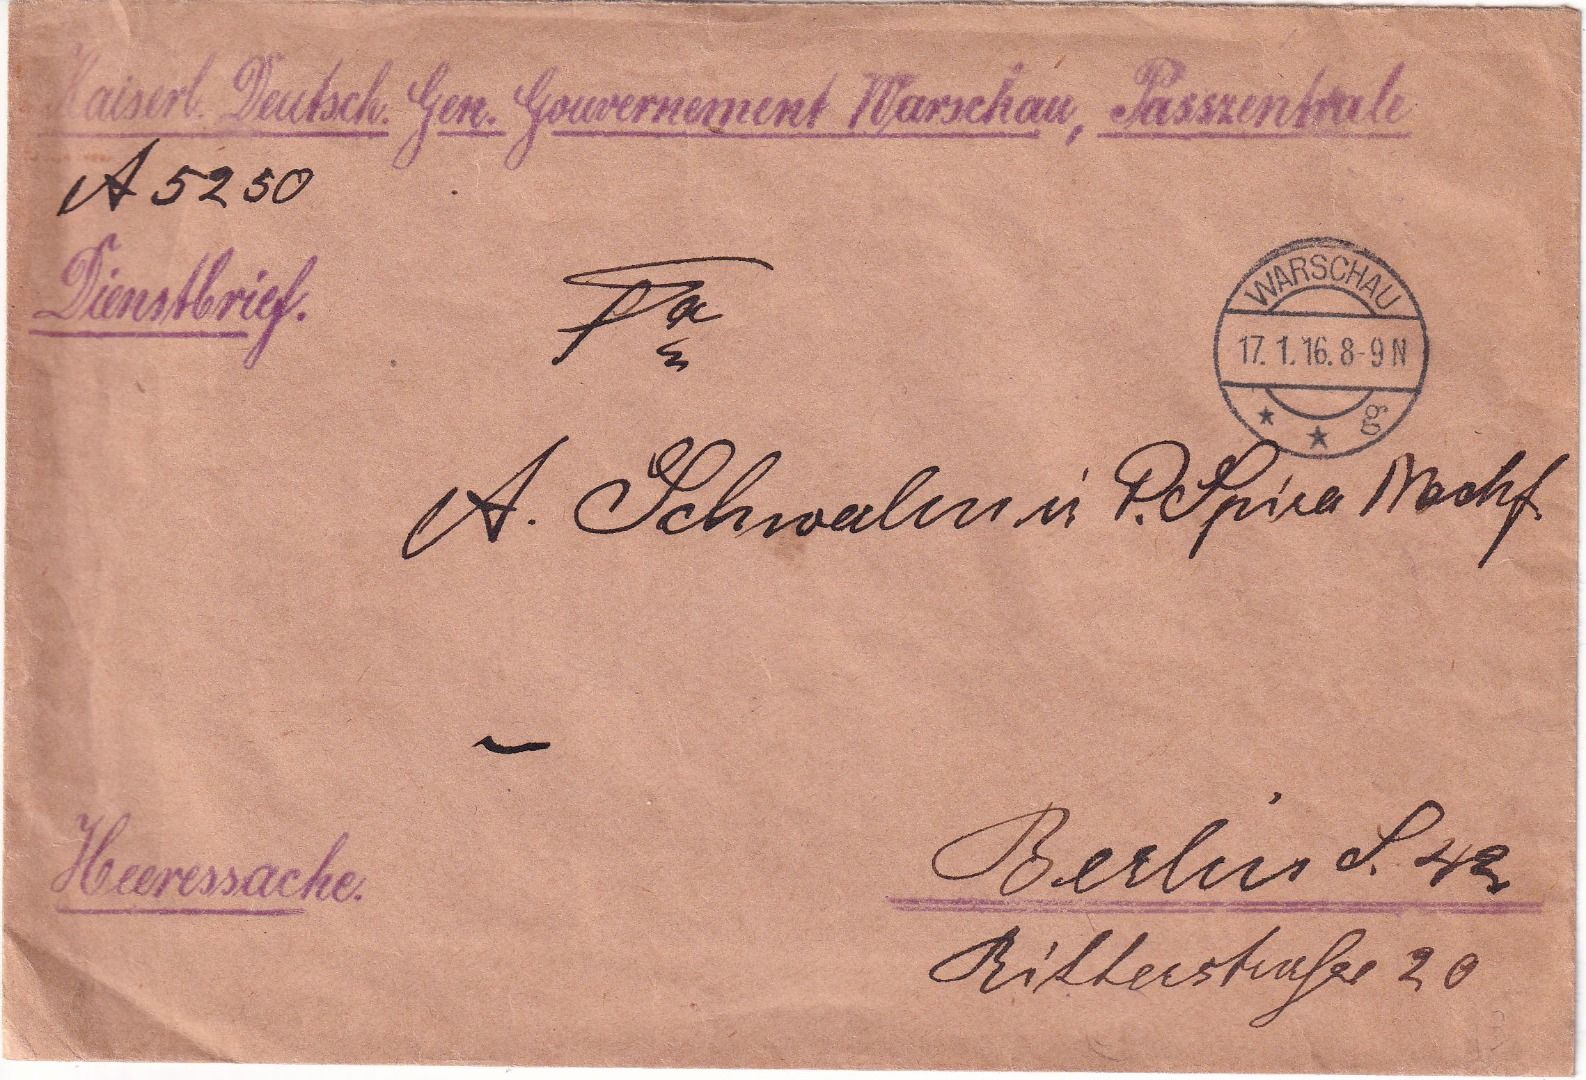 Kaiserl. Deutsch. Gen. Gouvernement Warschau, Passzentrale
A 5250
Dienstbrief.
WARSCHAU
17. 1. 16. 8-9 N
* * g
Fa
A. Schwalm u P. Spira Nachf.
Heeressache.
Berlin S. 42
Ritterstraße 20